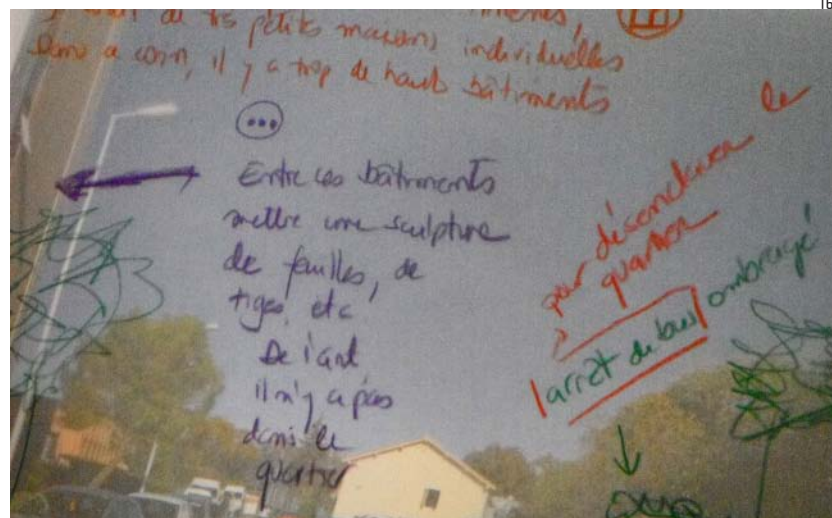 de très petits maisons individuelles
Dans a coin, il y a trop de hauts bâtiments
Entre ces bâtiments
mettre une sculpture
de feuilles, de
tiges, etc
De l'art
il n'y a pas
dans le
quartier
pour désenclaver le
quartier
arrêt de bus ombragé
16